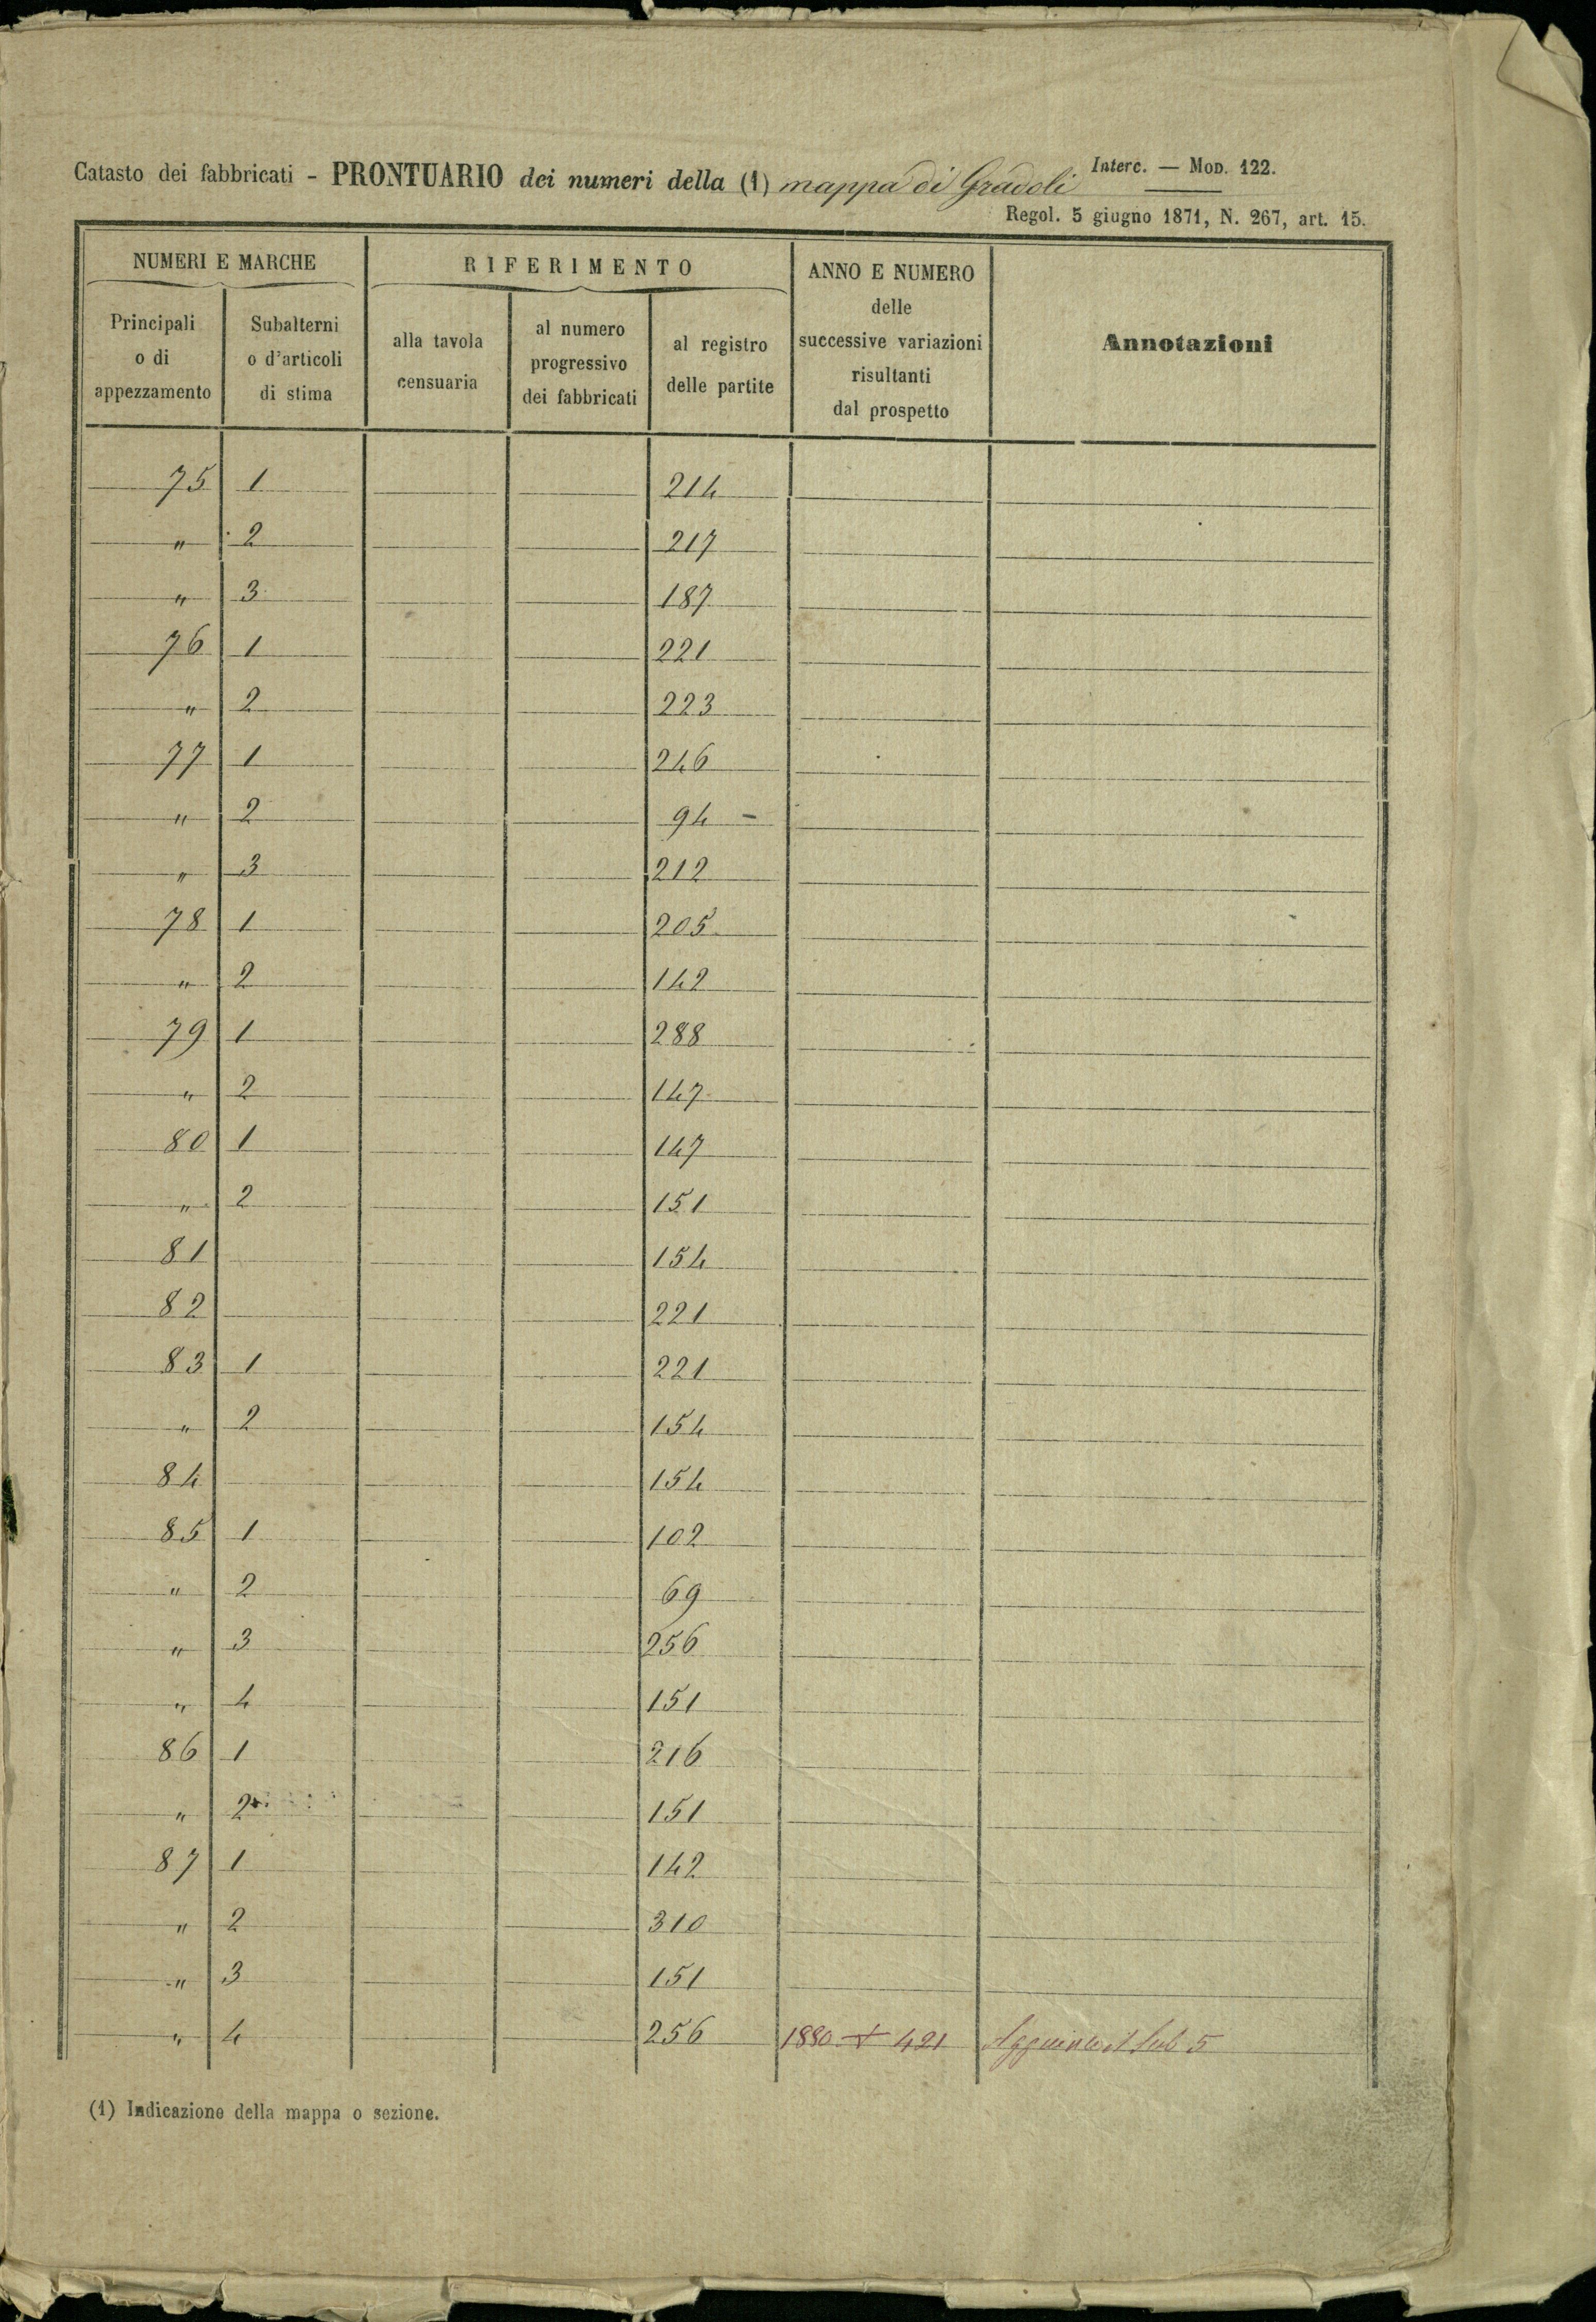 Catasto dei fabbricati - PRONTUARIO dei numeri della (1) mappa di Gradoli Interc. — Mod. 122.
Regol. 5 giugno 1871, N. 267, art. 15.
NUMERI E MARCHE RIFERIMENTO ANNO E NUMERO delle successive variazioni risultanti dal prospetto Annotazioni
Principali o di appezzamento Subalterni o d'articoli di stima alla tavola censuaria al numero progressivo dei fabbricati al registro delle partite
75 1 214
" 2 217
" 3 187
76 1 221
" 2 223
77 1 246
" 2 94 -
" 3 212
78 1 205
" 2 142
79 1 288
" 2 147
80 1 147
" 2 151
81 154
82 221
83 1 221
" 2 154
84 154
85 1 102
" 2 69
" 3 256
" 4 151
86 1 216
" 2 151
87 1 142
" 2 310
" 3 151
" 4 256 1880 + 421 Sub 5
(1) Indicazione della mappa o sezione.